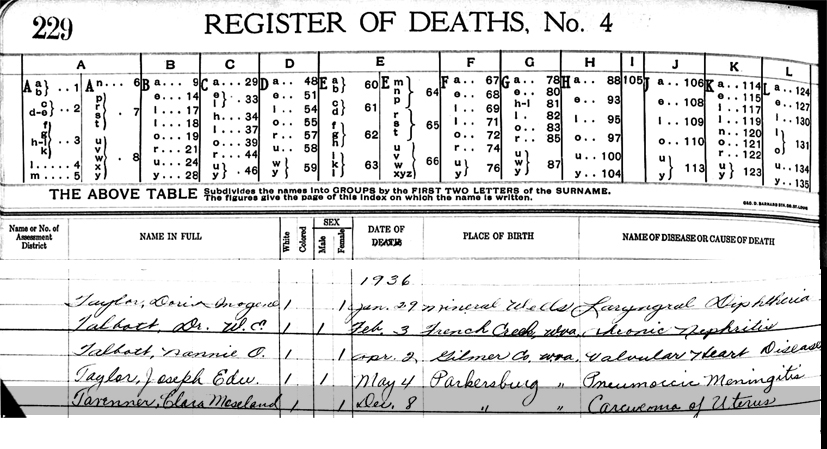 229
REGISTER OF DEATHS, No. 4
A B C D E F G H I J K L
A a b } .. 1 A n ... 6 B a .. 9 C a .. 29 D a .. 48 E a b } 60 E m n p } 64 F a .. 67 G a .. 78 H a .. 88 105 J a .. 106 K a .. 114 L a .. 124
c d-e } .. 2 p r s t } . 7 e .. 14 e l } . 33 e .. 51 c d } 61 r s t } 65 e .. 68 e .. 80 e .. 93 e .. 108 e .. 115 e .. 127
i .. 17 h .. 34 i .. 54 i .. 69 h-l 81 i .. 95 i .. 117 i .. 130
f g h-i k } .. 3 u v w x y } . 8 l .. 18 l .. 37 o .. 55 f g h } 62 u v w xyz } 66 l .. 71 l . 82 o .. 97 o .. 110 l .. 119 l o } 131
o .. 19 o .. 39 r .. 57 o .. 72 o .. 83 n .. 120
r .. 21 r .. 44 u .. 58 r .. 74 r .. 85 o .. 121
l .... 4 u .. 24 u y } . 46 w y } 59 k l } 63 u y } 76 u w y } 87 u .. 100 u y } 113 r .. 122 u .. 134
m .... 5 y .. 28 y .. 104 u y } 123 y .. 135
THE ABOVE TABLE Subdivides the names into GROUPS by the FIRST TWO LETTERS of the SURNAME.
The figures give the page of this Index on which the name is written.
GEO. D. BARNARD STA. CO. ST. LOUIS
Name or No. of Assessment District NAME IN FULL White Colored SEX Male Female DATE OF DEATH PLACE OF BIRTH NAME OF DISEASE OR CAUSE OF DEATH
1936
Taylor, Doris Imogene 1 1 Jan. 29 Mineral Wells Laryngral Diphtheria
Talbott, Dr. W. C. 1 1 Feb. 3 French Creek, W.va. Chronic Nephritis
Talbott, Nannie O. 1 1 Apr. 2, Gilmer Co. W.va, Valvular Heart Disease
Taylor, Joseph Edw. 1 1 May 4 Parkersburg " Pneumoccic Meningitis
Tavenner, Clara Moseland 1 1 Dec. 8 " " Carcinoma of Uterus